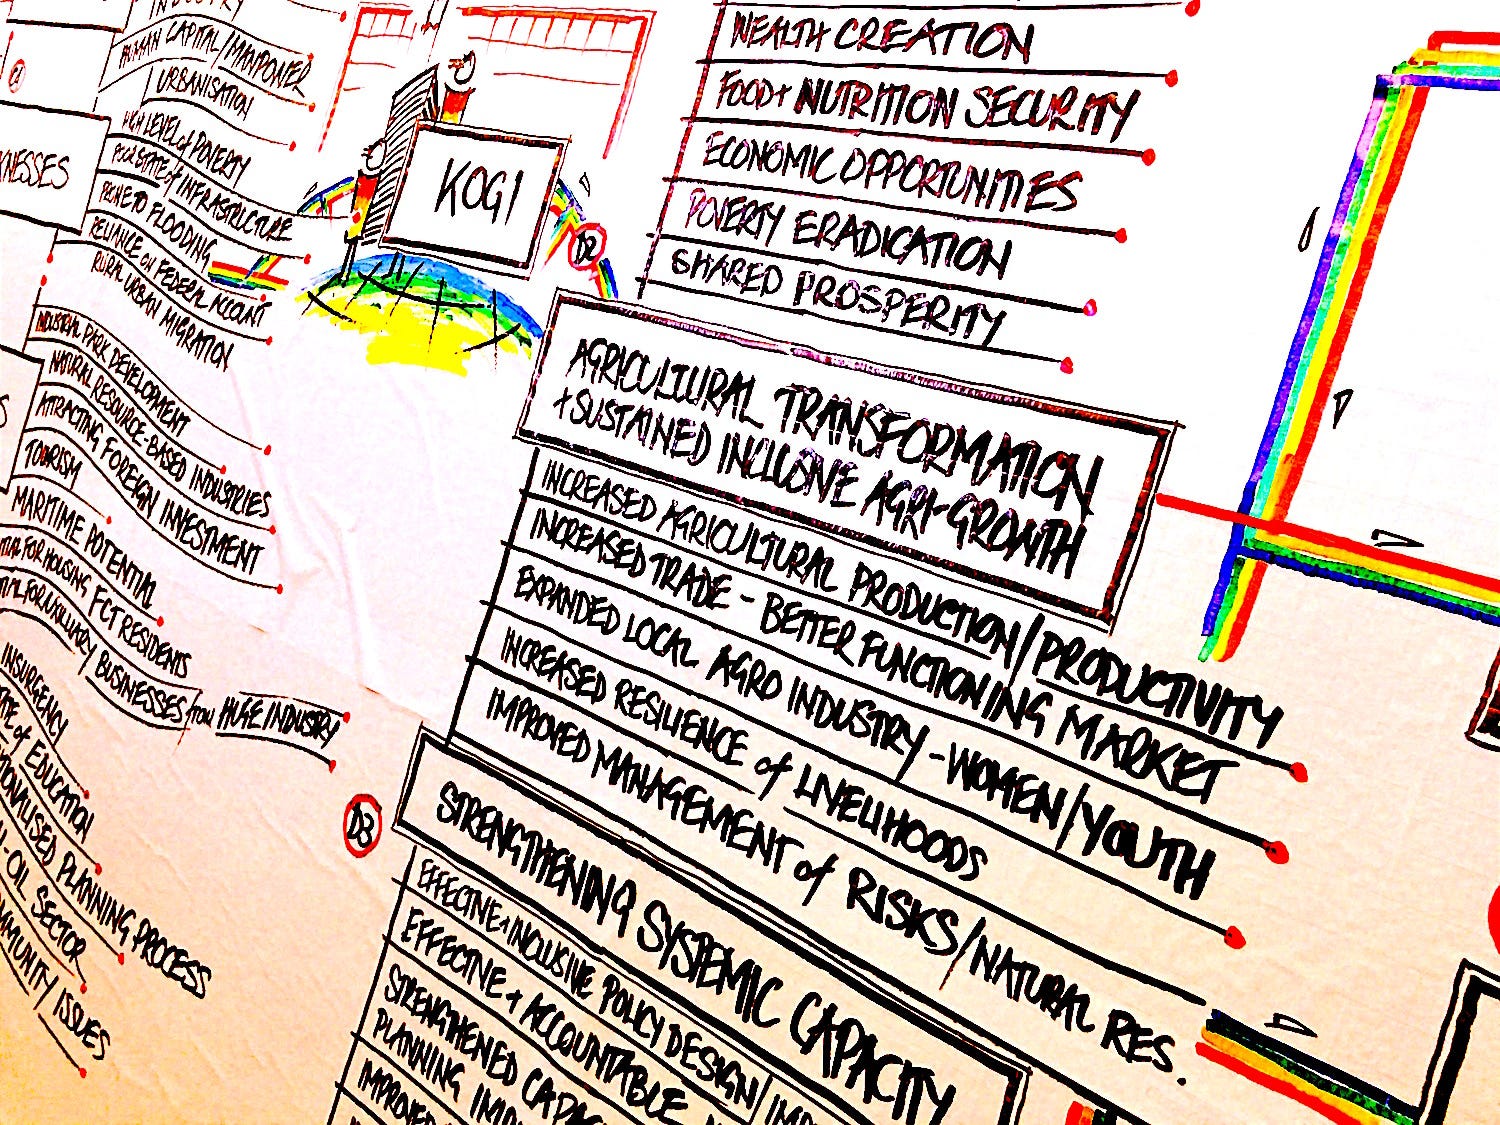 INDUSTRY
HUMAN CAPITAL/MANPOWER
URBANISATION
HIGH LEVEL of POVERTY
POOR STATE of INFRASTRUCTURE
PRONE TO FLOODING
RELIANCE ON FEDERAL ACCOUNT
RURAL URBAN MIGRATION
INDUSTRIAL PARK DEVELOPMENT
NATURAL RESOURCE-BASED INDUSTRIES
ATTRACTING FOREIGN INVESTMENT
TOURISM
MARITIME POTENTIAL
FOR HOUSING FCT RESIDENTS
FOR AUXILIARY BUSINESSES from HUGE INDUSTRY
INSURGENCY
of EDUCATION
PLANNING PROCESS
OIL SECTOR
ISSUES
KOGI
D2
WEALTH CREATION
FOOD + NUTRITION SECURITY
ECONOMIC OPPORTUNITIES
POVERTY ERADICATION
SHARED PROSPERITY
AGRICULTURAL TRANSFORMATION
+ SUSTAINED INCLUSIVE AGRI-GROWTH
INCREASED AGRICULTURAL PRODUCTION/PRODUCTIVITY
INCREASED TRADE - BETTER FUNCTIONING MARKET
EXPANDED LOCAL AGRO INDUSTRY - WOMEN/YOUTH
INCREASED RESILIENCE of LIVELIHOODS
IMPROVED MANAGEMENT of RISKS/NATURAL RES.
D3
STRENGTHENING SYSTEMIC CAPACITY
EFFECTIVE + INCLUSIVE POLICY DESIGN/
EFFECTIVE + ACCOUNTABLE
STRENGTHENED
PLANNING
IMPROVED